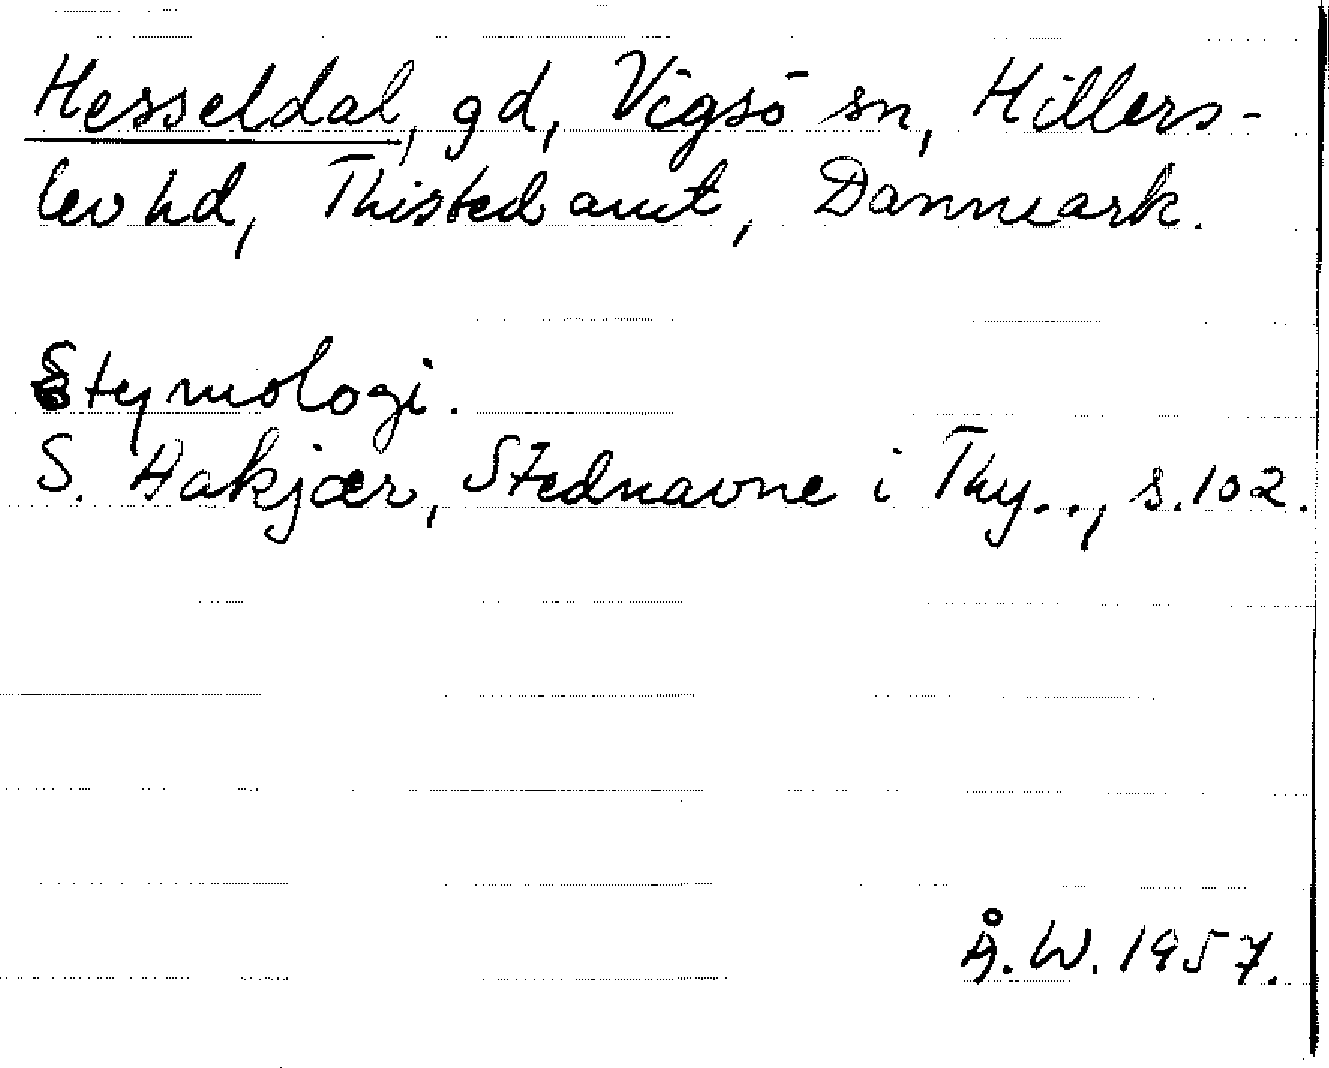 Hesseldal, gd, Vigsö sn, Hillers-
lev hd, Thisted amt, Danmark.
Etymologi.
S. Aakjær, Stednavne i Thy.., s.102.
Å.W. 1957.